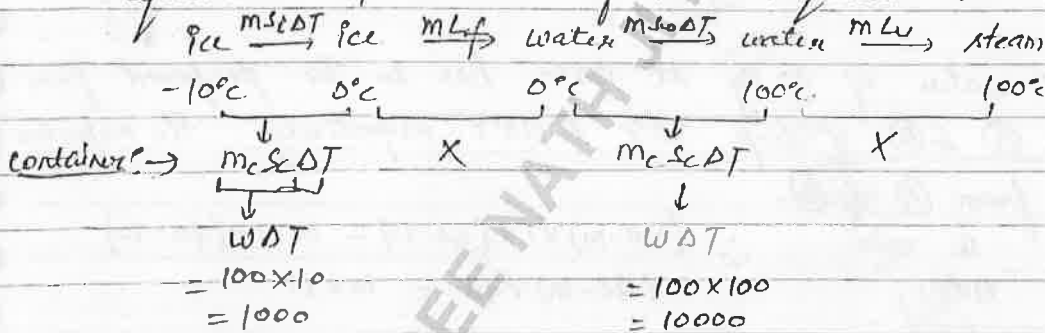 ice mSiΔT→ ice mLf→ water mSωΔT→ water mLv→ steam
-10°c. 0°c 0°c 100°c. 100°c
container:→ mc Sc ΔT X mc Sc ΔT X
WΔT WΔT
= 100×10 = 100×100
= 1000 = 10000
EE NATH